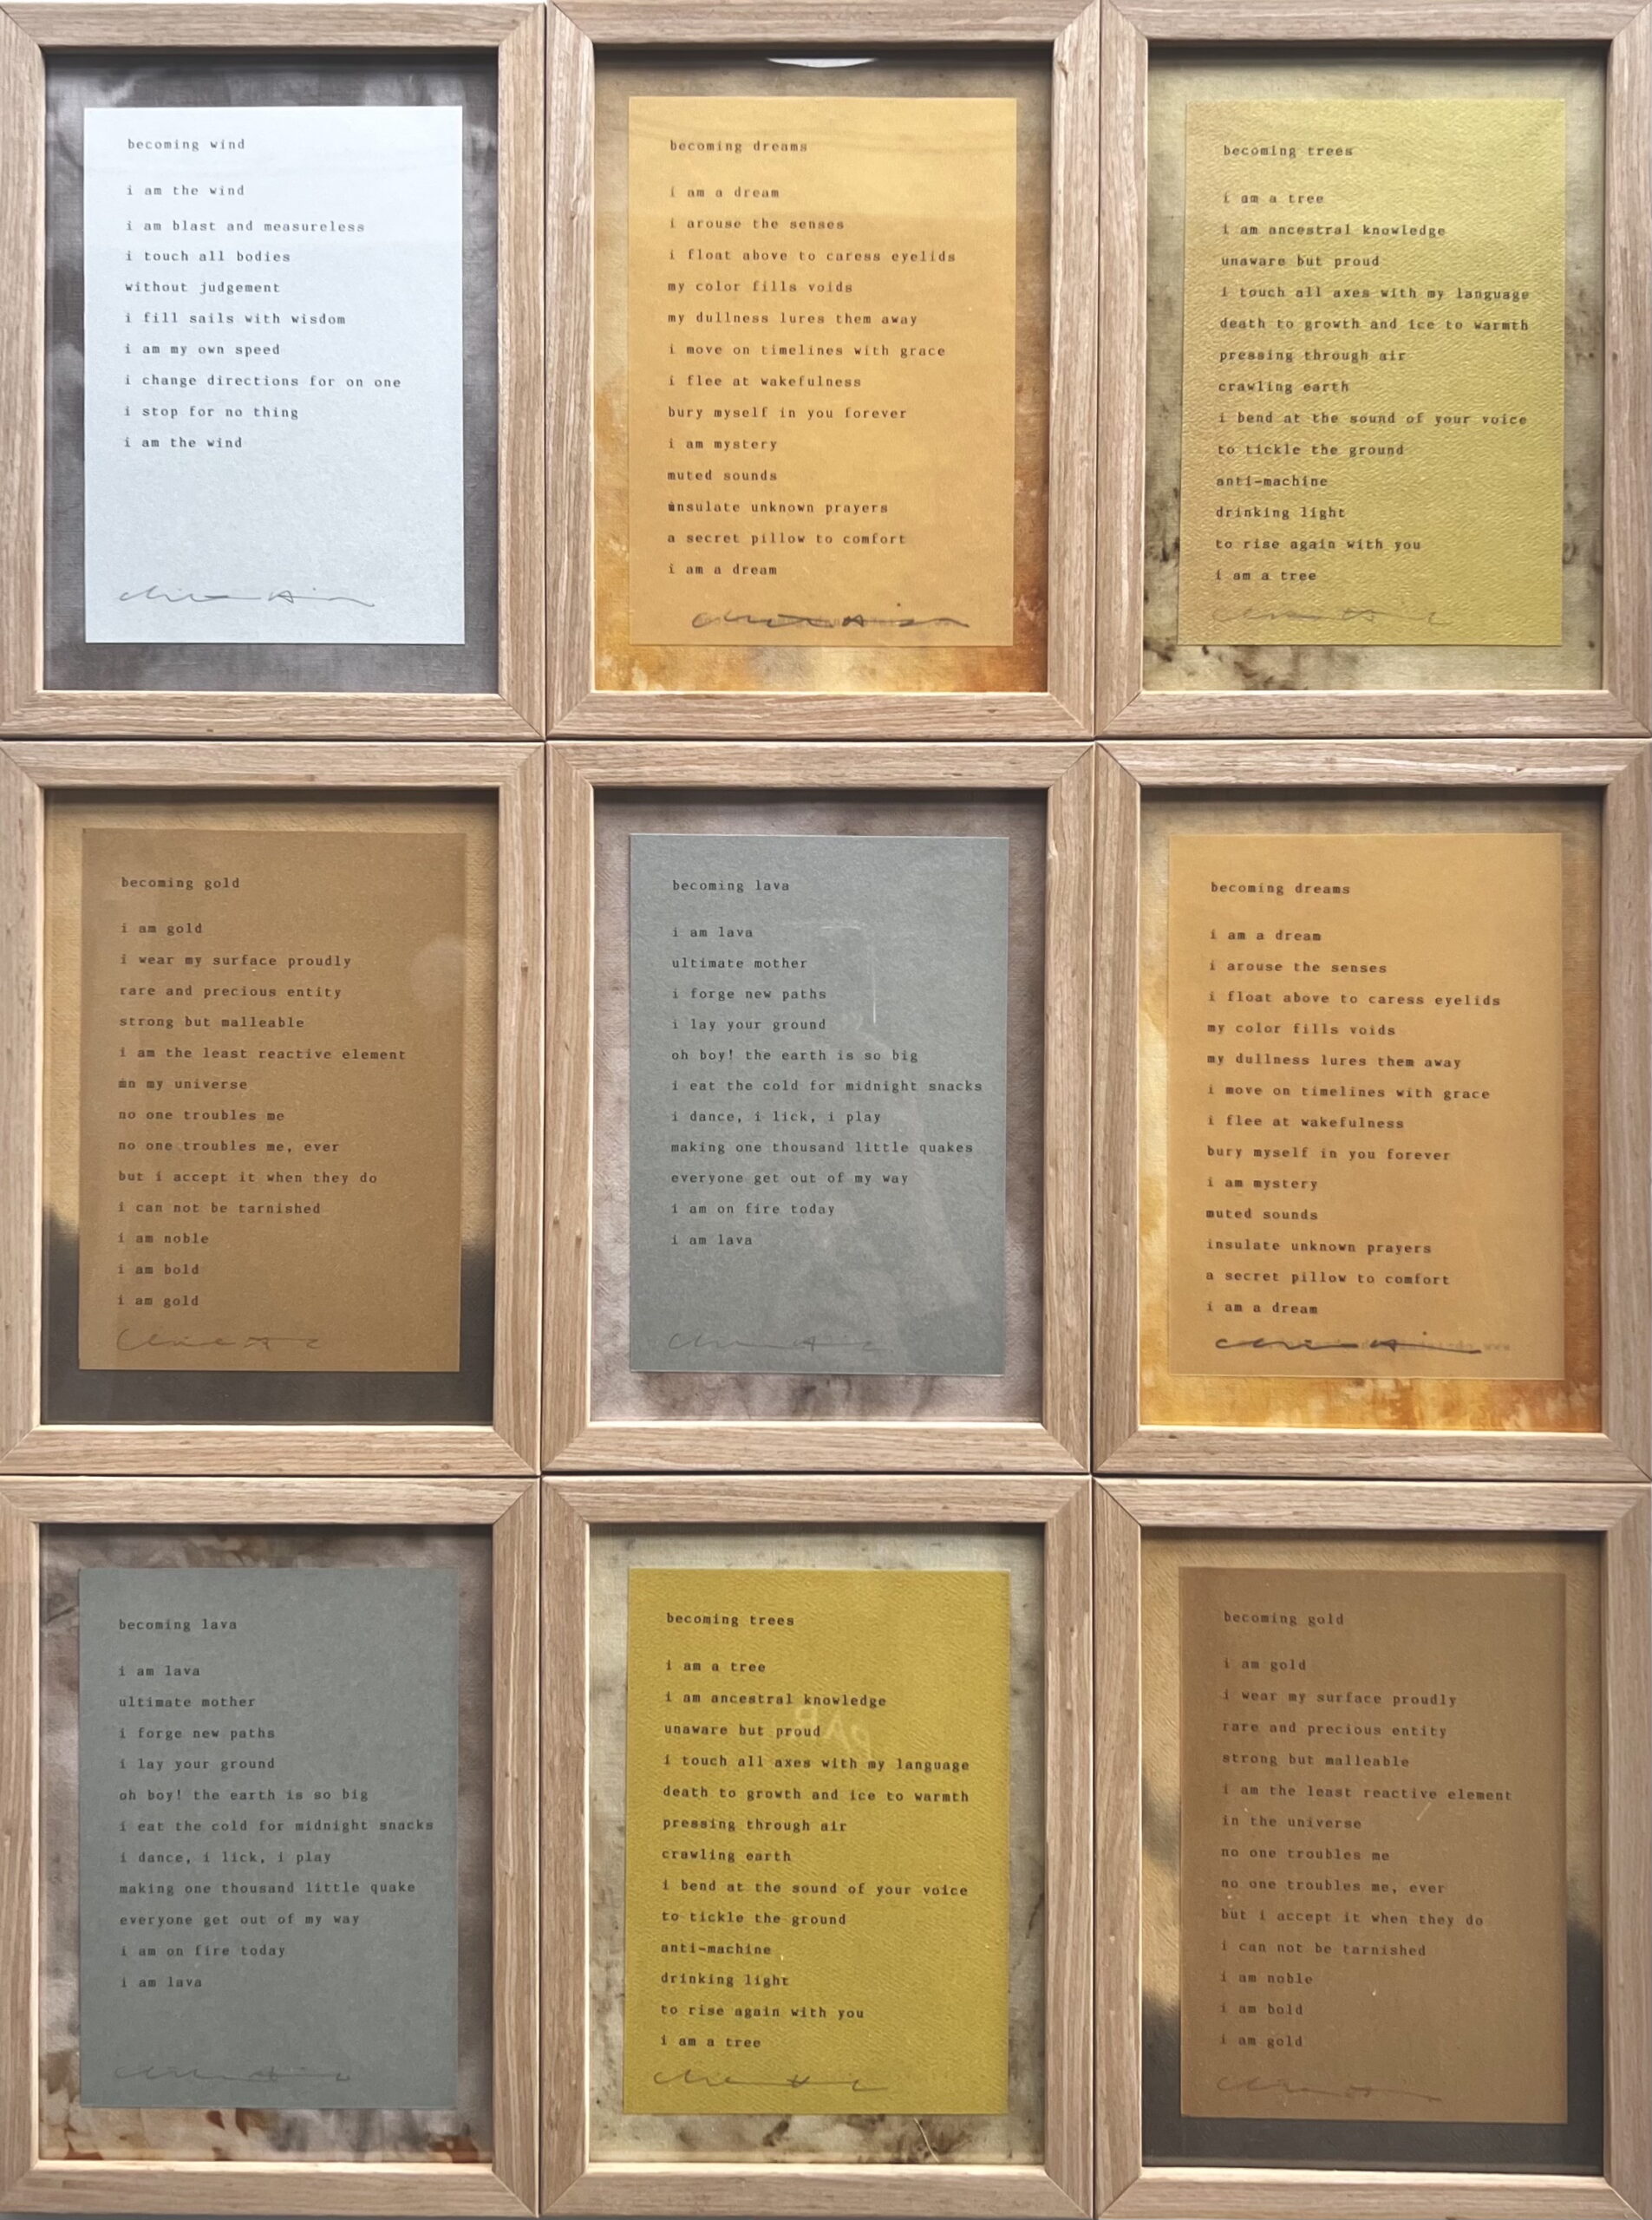 becoming wind
i am the wind
i am blast and measureless
i touch all bodies
without judgement
i fill sails with wisdom
i am my own speed
i change directions for on one
i stop for no thing
i am the wind
becoming dreams
i am a dream
i arouse the senses
i float above to caress eyelids
my color fills voids
my dullness lures them away
i move on timelines with grace
i flee at wakefulness
bury myself in you forever
i am mystery
muted sounds
insulate unknown prayers
a secret pillow to comfort
i am a dream
becoming trees
i am a tree
i am ancestral knowledge
unaware but proud
i touch all axes with my language
death to growth and ice to warmth
pressing through air
crawling earth
i bend at the sound of your voice
to tickle the ground
anti-machine
drinking light
to rise again with you
i am a tree
becoming gold
i am gold
i wear my surface proudly
rare and precious entity
strong but malleable
i am the least reactive element
in my universe
no one troubles me
no one troubles me, ever
but i accept it when they do
i can not be tarnished
i am noble
i am bold
i am gold
becoming lava
i am lava
ultimate mother
i forge new paths
i lay your ground
oh boy! the earth is so big
i eat the cold for midnight snacks
i dance, i lick, i play
making one thousand little quakes
everyone get out of my way
i am on fire today
i am lava
becoming dreams
i am a dream
i arouse the senses
i float above to caress eyelids
my color fills voids
my dullness lures them away
i move on timelines with grace
i flee at wakefulness
bury myself in you forever
i am mystery
muted sounds
insulate unknown prayers
a secret pillow to comfort
i am a dream
becoming lava
i am lava
ultimate mother
i forge new paths
i lay your ground
oh boy! the earth is so big
i eat the cold for midnight snacks
i dance, i lick, i play
making one thousand little quake
everyone get out of my way
i am on fire today
i am lava
becoming trees
i am a tree
i am ancestral knowledge
unaware but proud
i touch all axes with my language
death to growth and ice to warmth
pressing through air
crawling earth
i bend at the sound of your voice
to tickle the ground
anti-machine
drinking light
to rise again with you
i am a tree
becoming gold
i am gold
i wear my surface proudly
rare and precious entity
strong but malleable
i am the least reactive element
in the universe
no one troubles me
no one troubles me, ever
but i accept it when they do
i can not be tarnished
i am noble
i am bold
i am gold